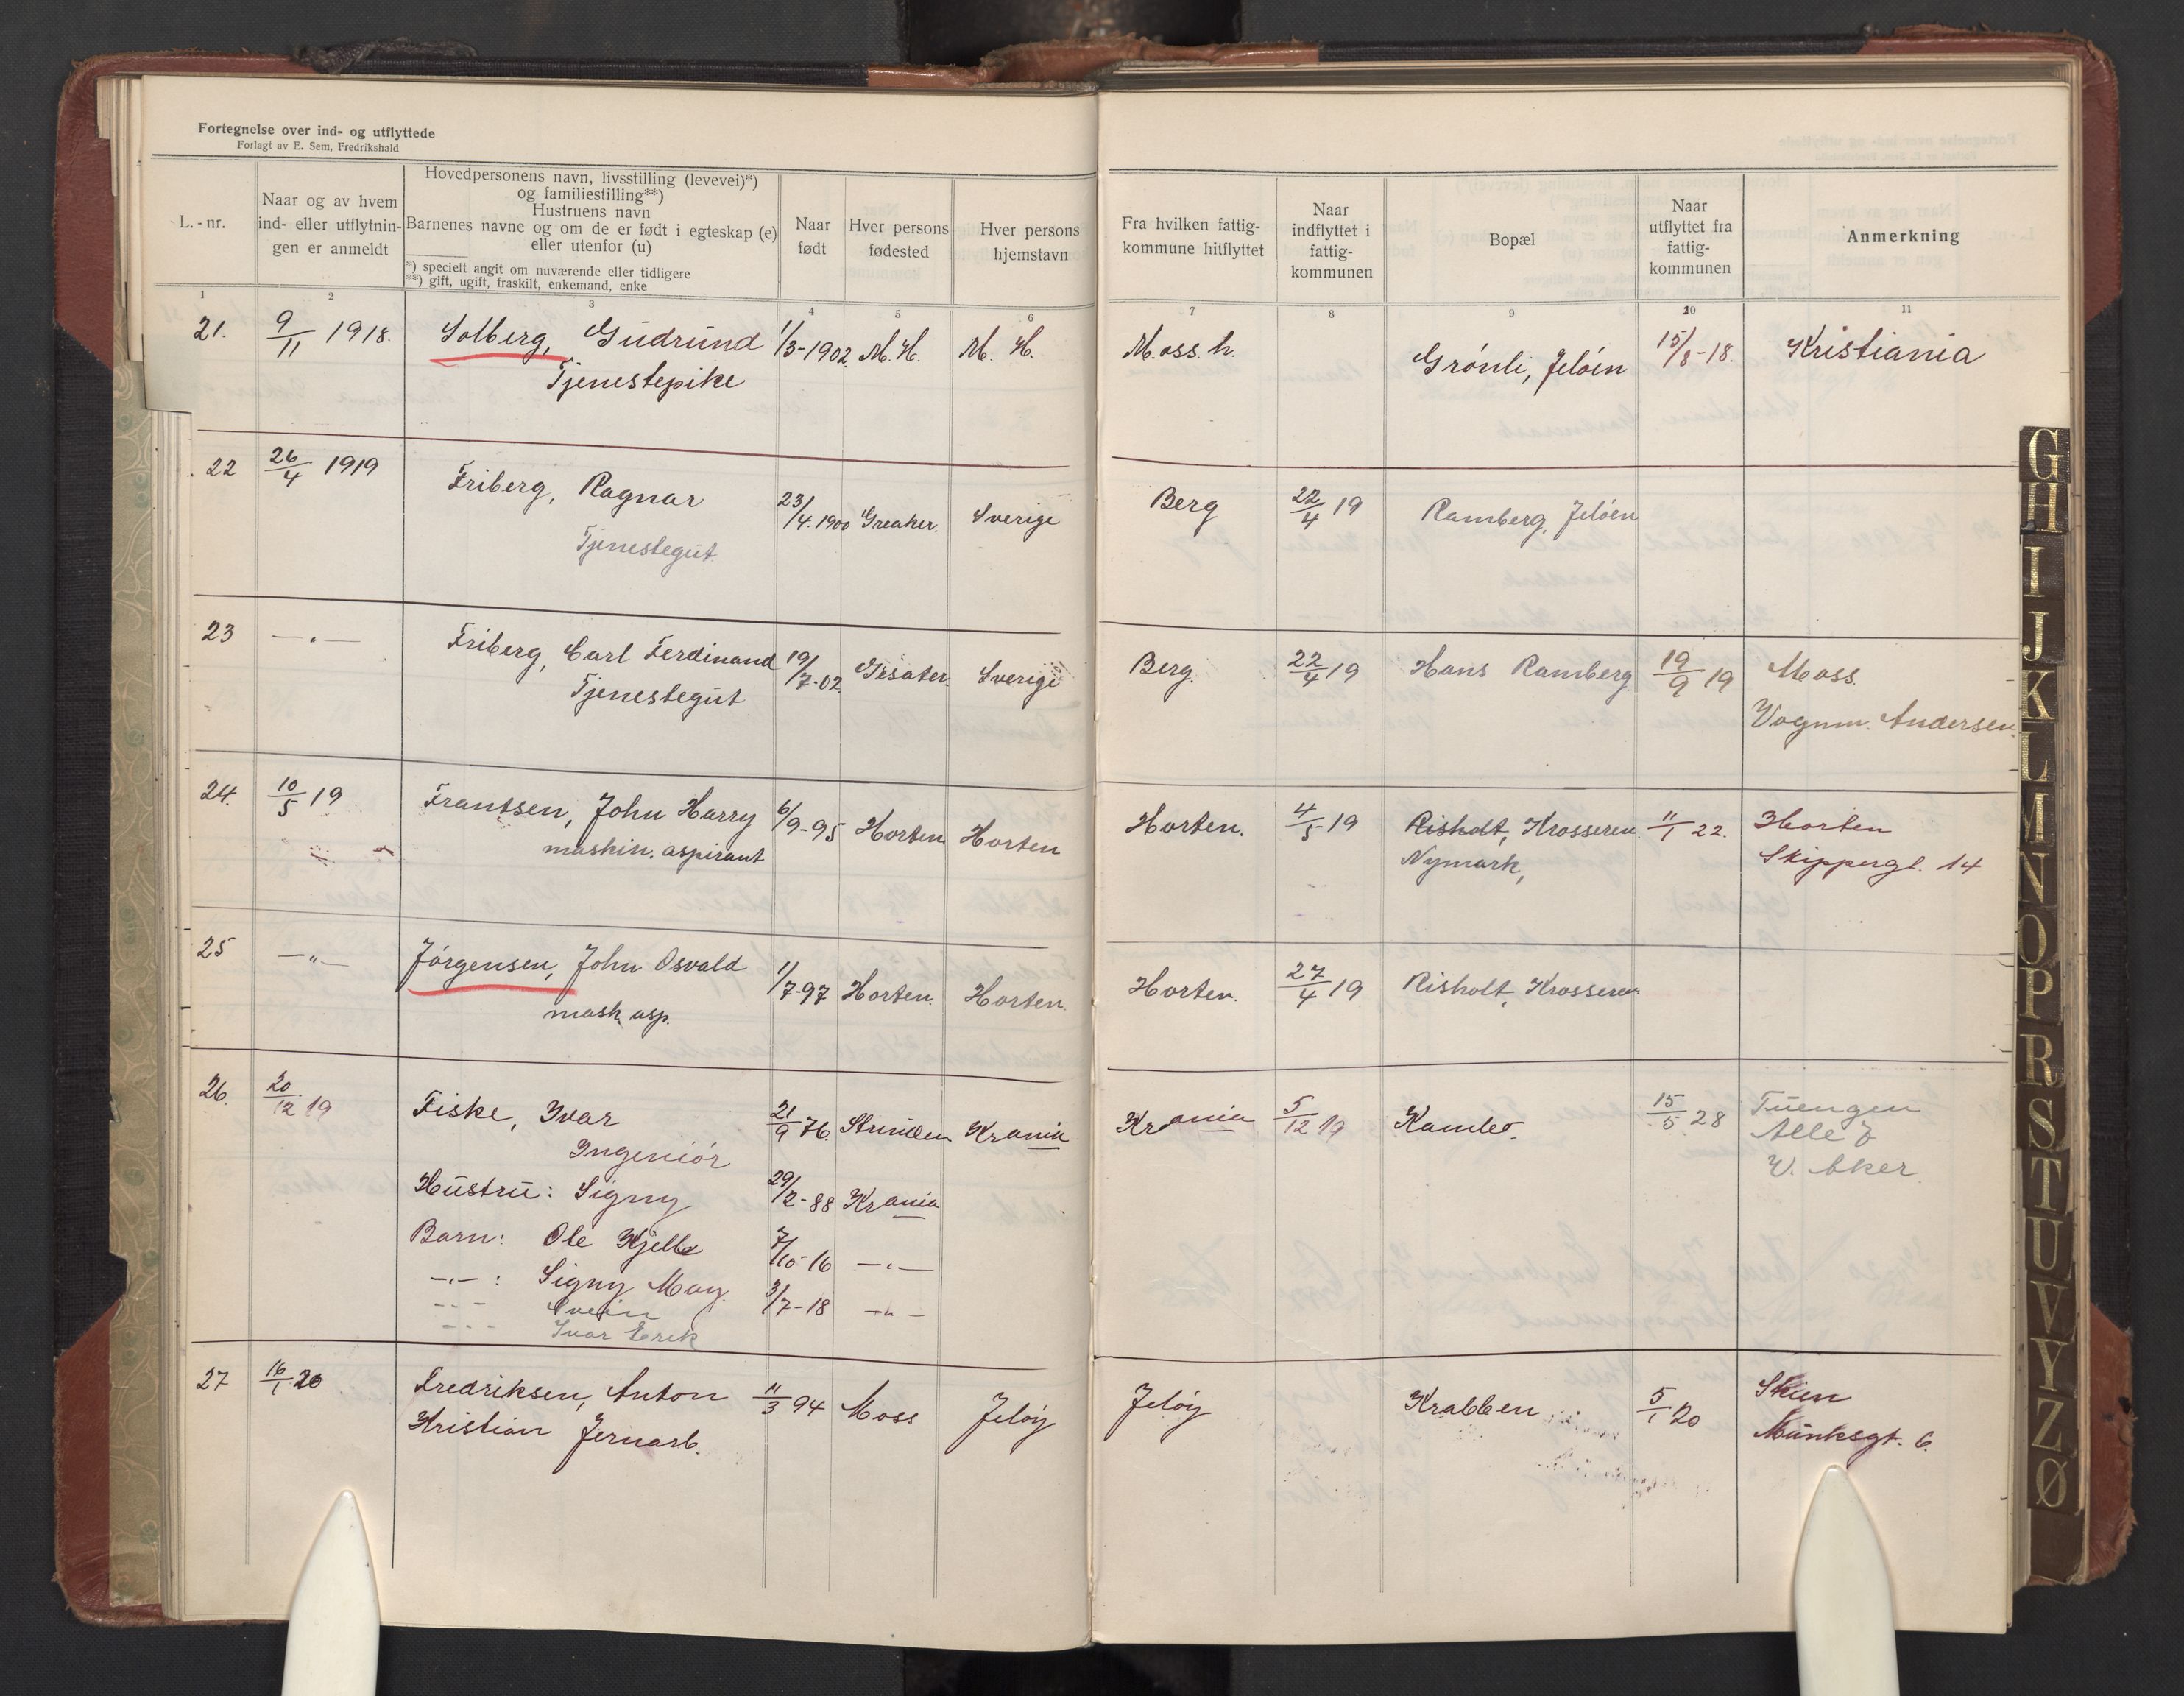 Fortegnelse over ind- og utflyttede
Forlagt av E. Sem, Fredrikshald
L.-nr.
Naar og av hvem
ind- eller utflytnin-
gen er anmeldt
Hovedpersonens navn, livsstilling (levevei)*)
og familiestilling**)
Hustruens navn
Barnenes navne og om de er født i egteskap (e)
eller utenfor (u)
*) specielt angit om nuværende eller tidligere
**) gift, ugift, fraskilt, enkemand, enke
Naar
født
Hver persons
fødested
Hver persons
hjemstavn
Fra hvilken fattig-
kommune hitflyttet
Naar
indflyttet i
fattig-
kommunen
Bopæl
Naar
utflyttet fra
fattig-
kommunen
Anmerkning
1 2 3 4 5 6 7 8 9 10 11
21. 9/11 1918. Solberg, Gudrund 1/3-1902. M.H. M. H. Moss h. Grönli, Jelöen 15/8-18. Kristiania
Tjenestepike
22 26/4 1919 Friberg, Ragnar 23/4.1900 Greaker. Sverige Berg 22/4 19 Ramberg, Jelöen
Tjenestegut.
23 —„— Friberg, Carl Ferdinand 19/7-02. Sverige Berg. 22/4 19 Hans Ramberg 19/9 19 Moss.
Tjenestegut Vognm. Andersen.
24. 10/5 19 Frantsen, John Harry 6/9-95 Horten Horten Horten. 4/5-19 Risholt, Krosseren 11/1 22. Horten
maskin. aspirant Nymark, Skippergt. 14
25 —„— Jörgensen, John Osvald 1/7-97 Horten. Horten. Horten. 27/4 19 Risholt, Krosseren
mask. asp.
26. 20/12 19 Fiske, Ivar 21/9 76. Strinden Krania Krania 5/12 19 Kambo. 15/5 28 Tuengen
Ingeniör Alle 7
V. Aker.
Hustru: Signy 29/2-88 Krania
Barn: Ole Kjell 7/10-16 —„—
—„— : Signy May. 3/7-18 —„—
—„— Svein
—„— Ivar Erik
27 16/1 20 Fredriksen, Anton 11/3 94 Moss Jelöy Jelöy Krabben 5/1 20 Skien
Kristian Jernarb. Munksgt. 6.
G
H
I
J
K
L
M
N
O
P
R
S
T
U
V
Y
Z
Ø